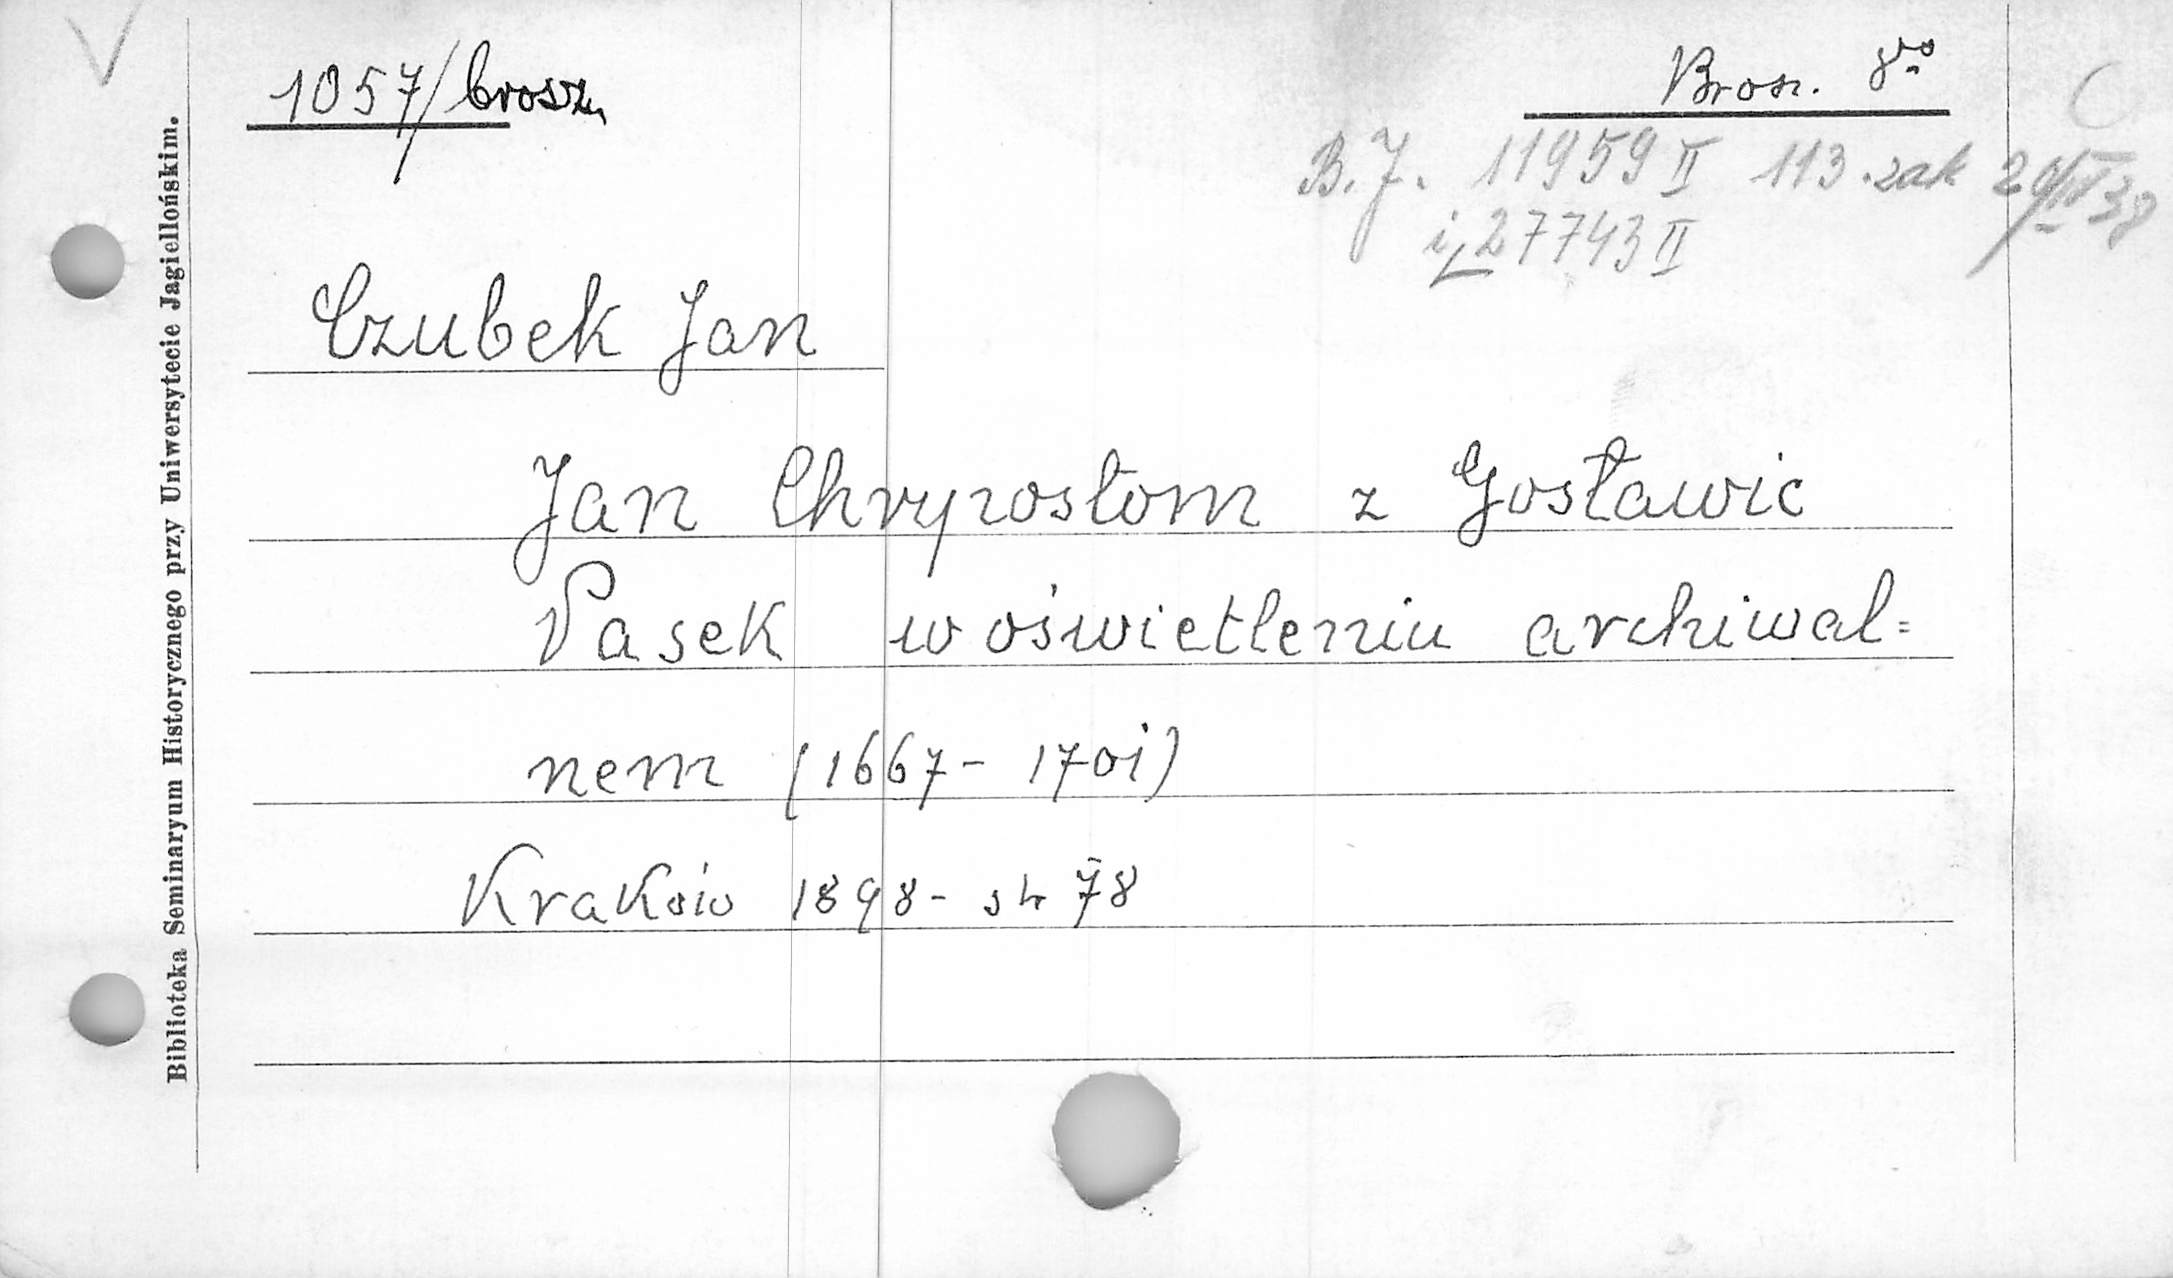 1057/brosz.
Brosz. 8vo
B. J. 11959 II 113. zak 29/IV 38
i 27743 II
Czubek Jan
Jan Chryzostom z Gosławic
Pasek w oświetleniu archiwal=
nem (1667- 1701)
Kraków 1898- str 78
Biblioteka Seminaryum Historycznego przy Uniwersytecie Jagiellońskim.